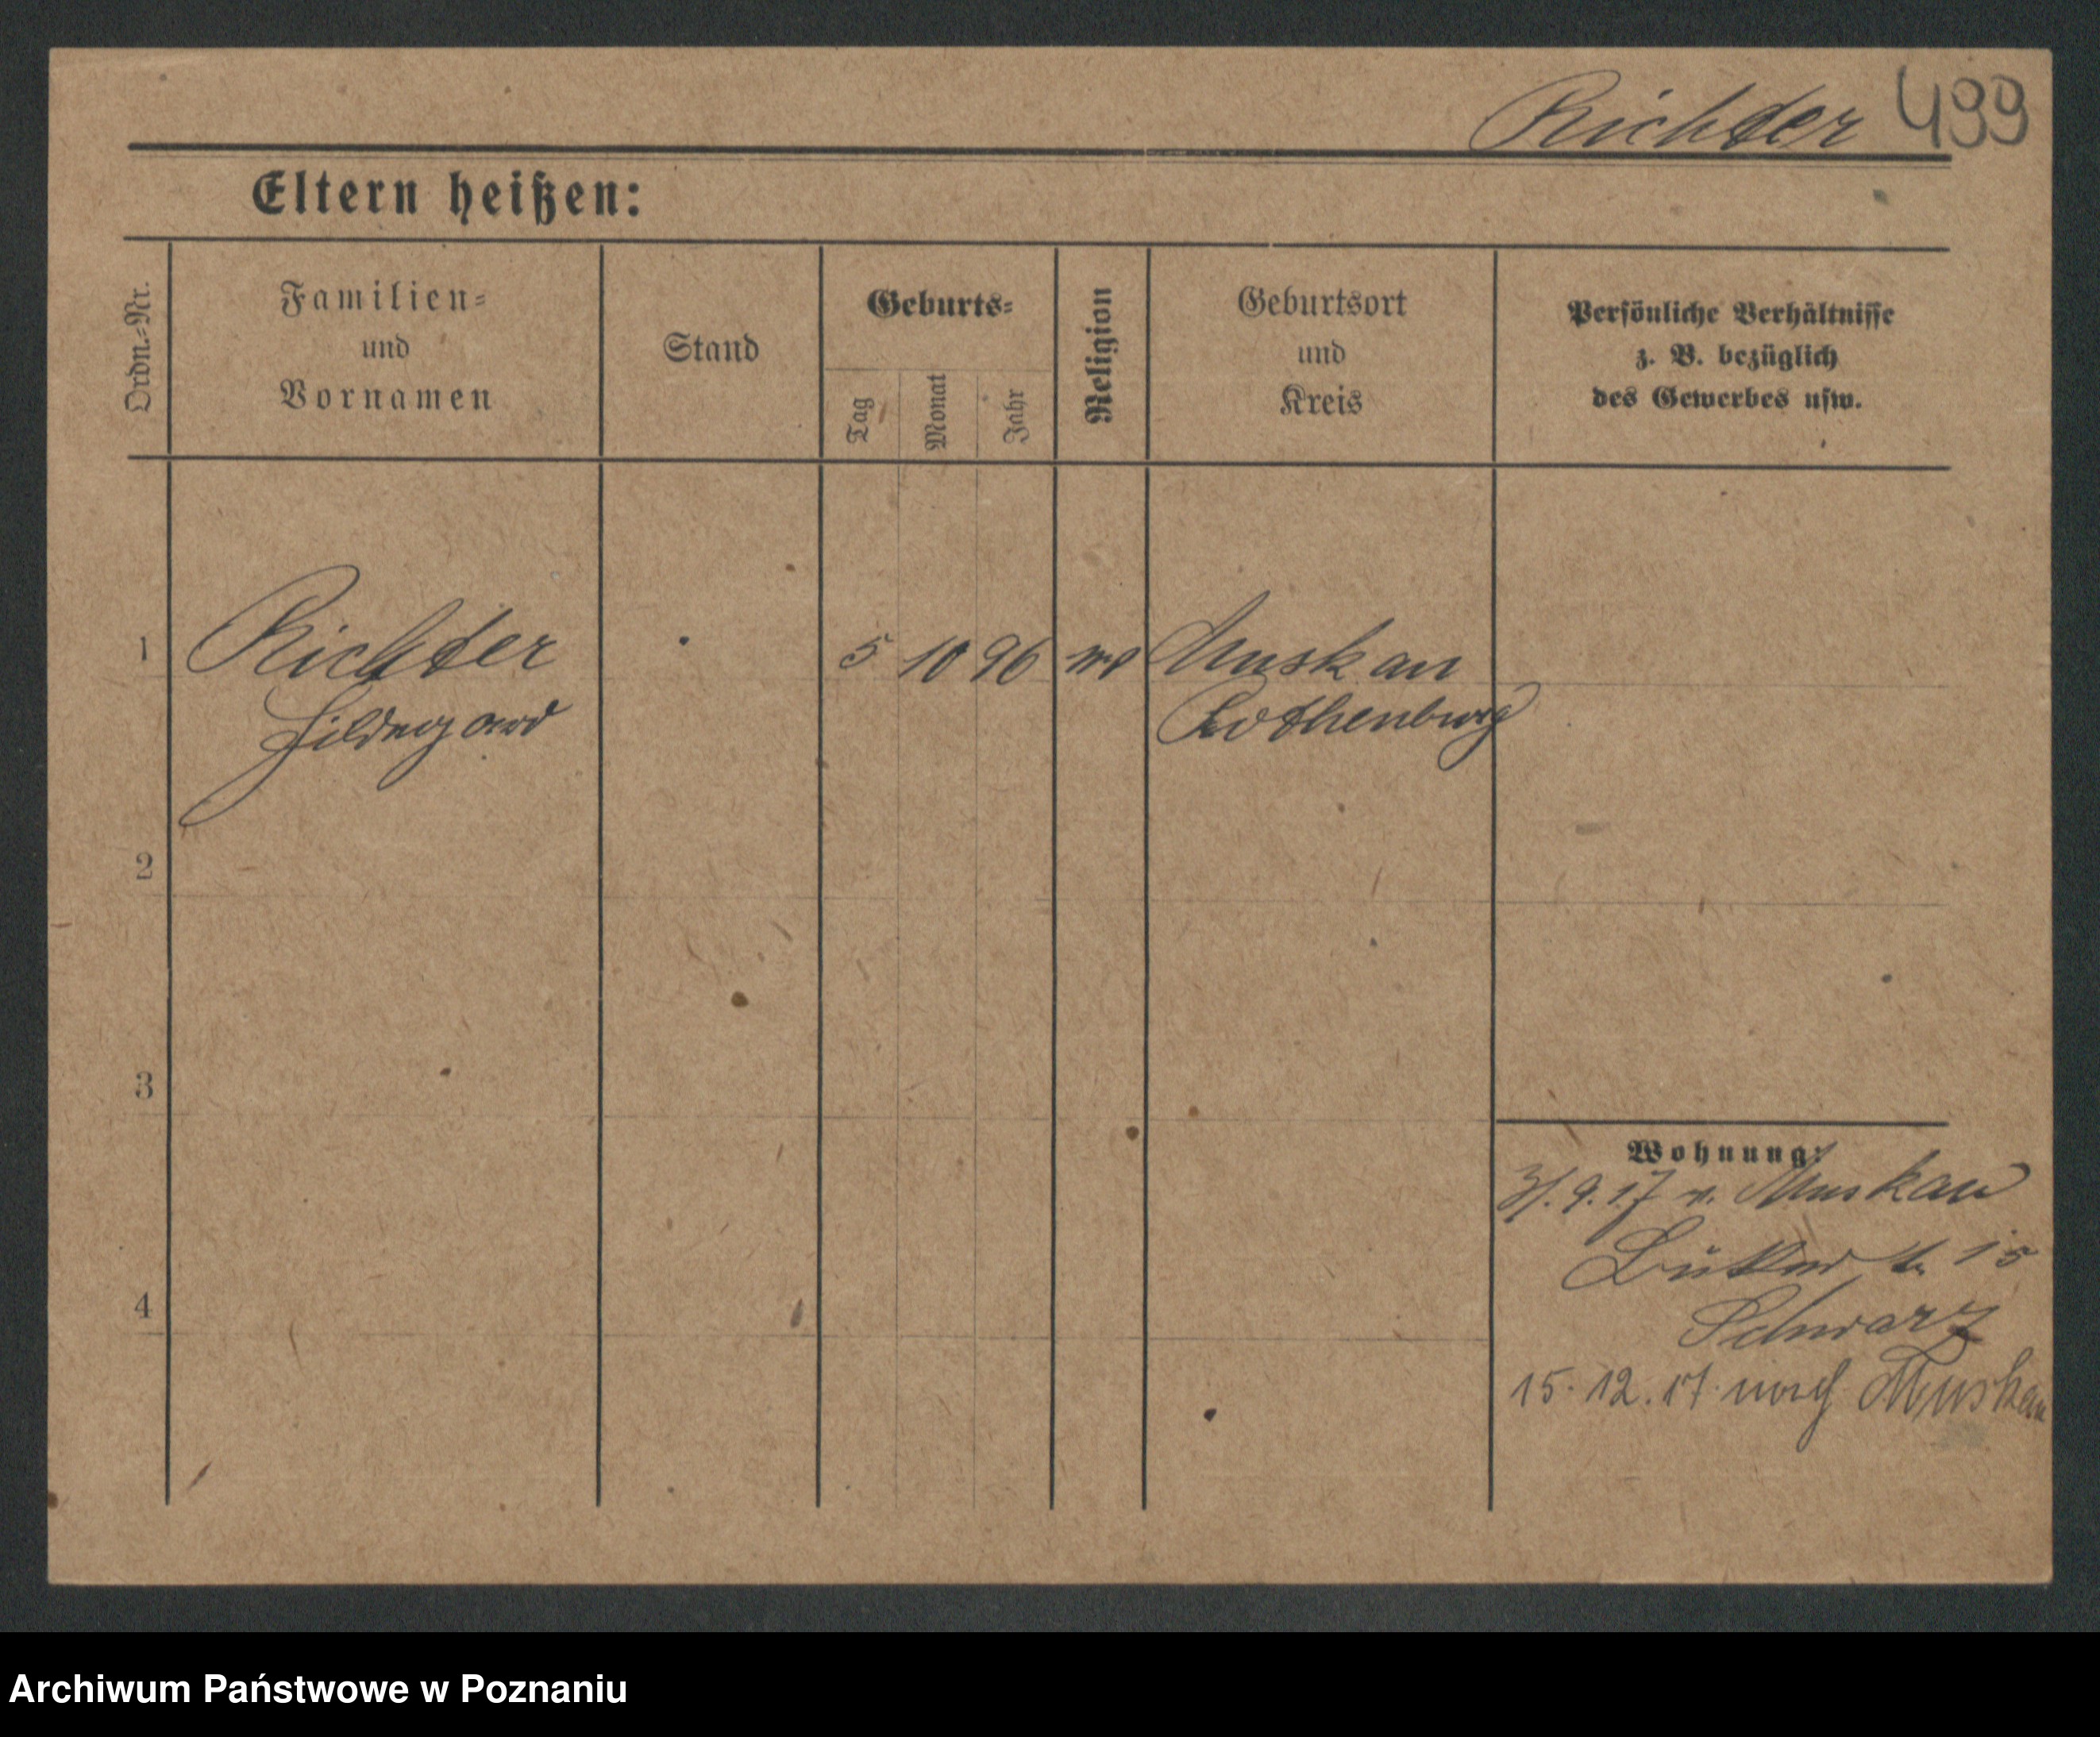 Richter 499
Eltern heißen:
Ordn.-Nr.
Familien-
und
Vornamen
Stand
Geburts-
Tag
Monat
Jahr
Religion
Geburtsort
und
Kreis
Persönliche Verhältnisse
z. B. bezüglich
des Gewerbes usw.
1 Richter 5 10 96 Muskau
Hildegard Rothenburg
2
3
4
Wohnung:
9.17 v. Muskau
15
Schwarz
15.12.17. nach Muskau
Archiwum Państwowe w Poznaniu